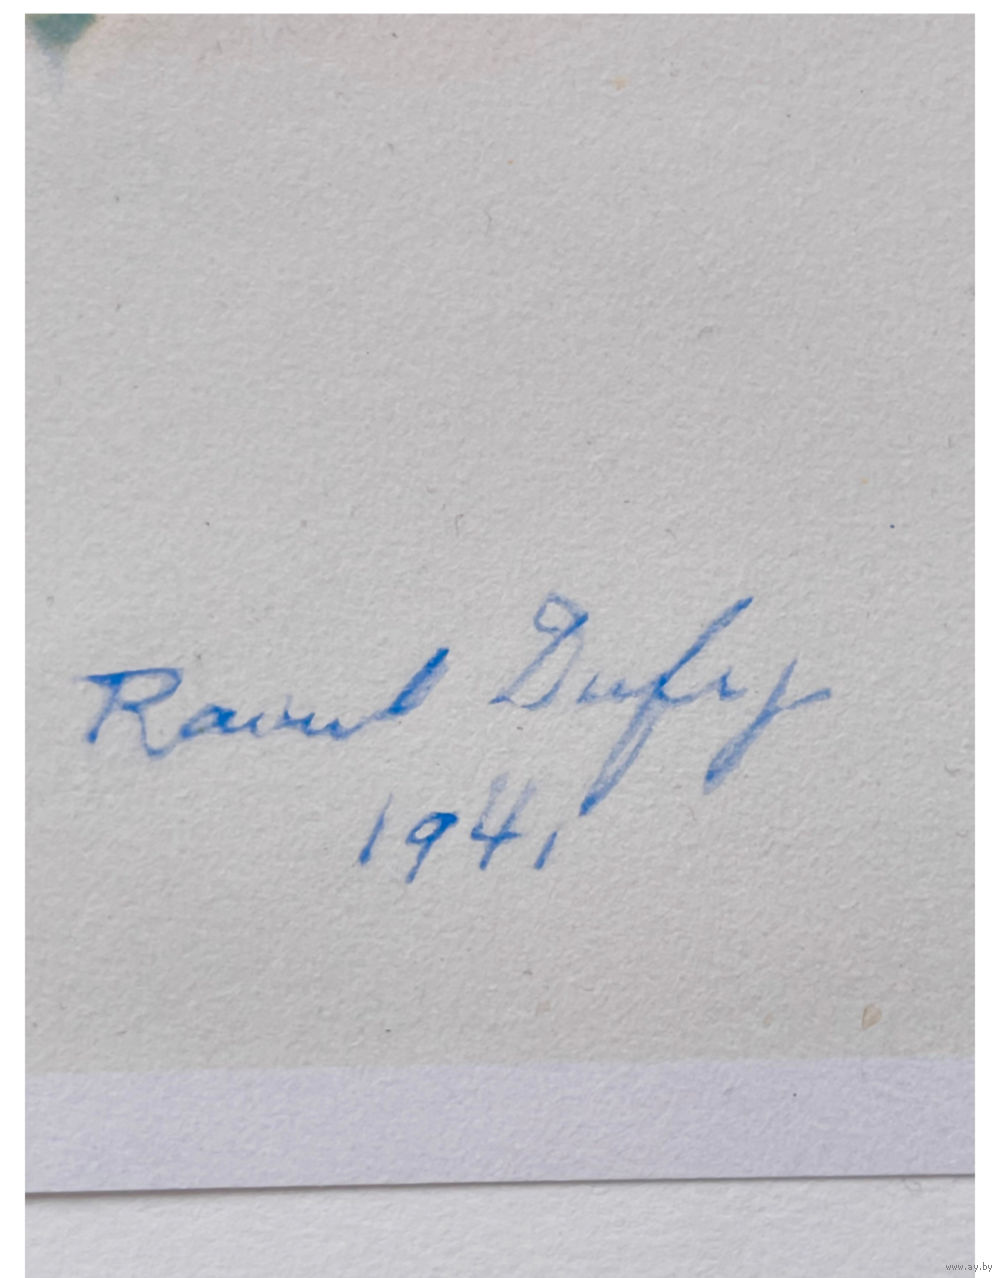 Raoul Dufy
1941
www.ay.by